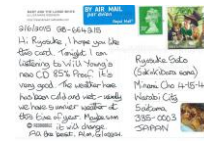 BY AIR MAIL
par avion
Royal Mail
Hi Ryosuke, I hope you like
this card. Tonight I am
listening to Will Young's
new CD 85% Proof. It's
very good. The weather here
has been cold and wet - usually
we have sunnier weather at
this time of year. Maybe soon
it will change.
All the best, Alan, Glasgow.
Ryosuke Sato
Minami Cho 4-15-4
Warabi City
Saitama
335-0003
JAPAN